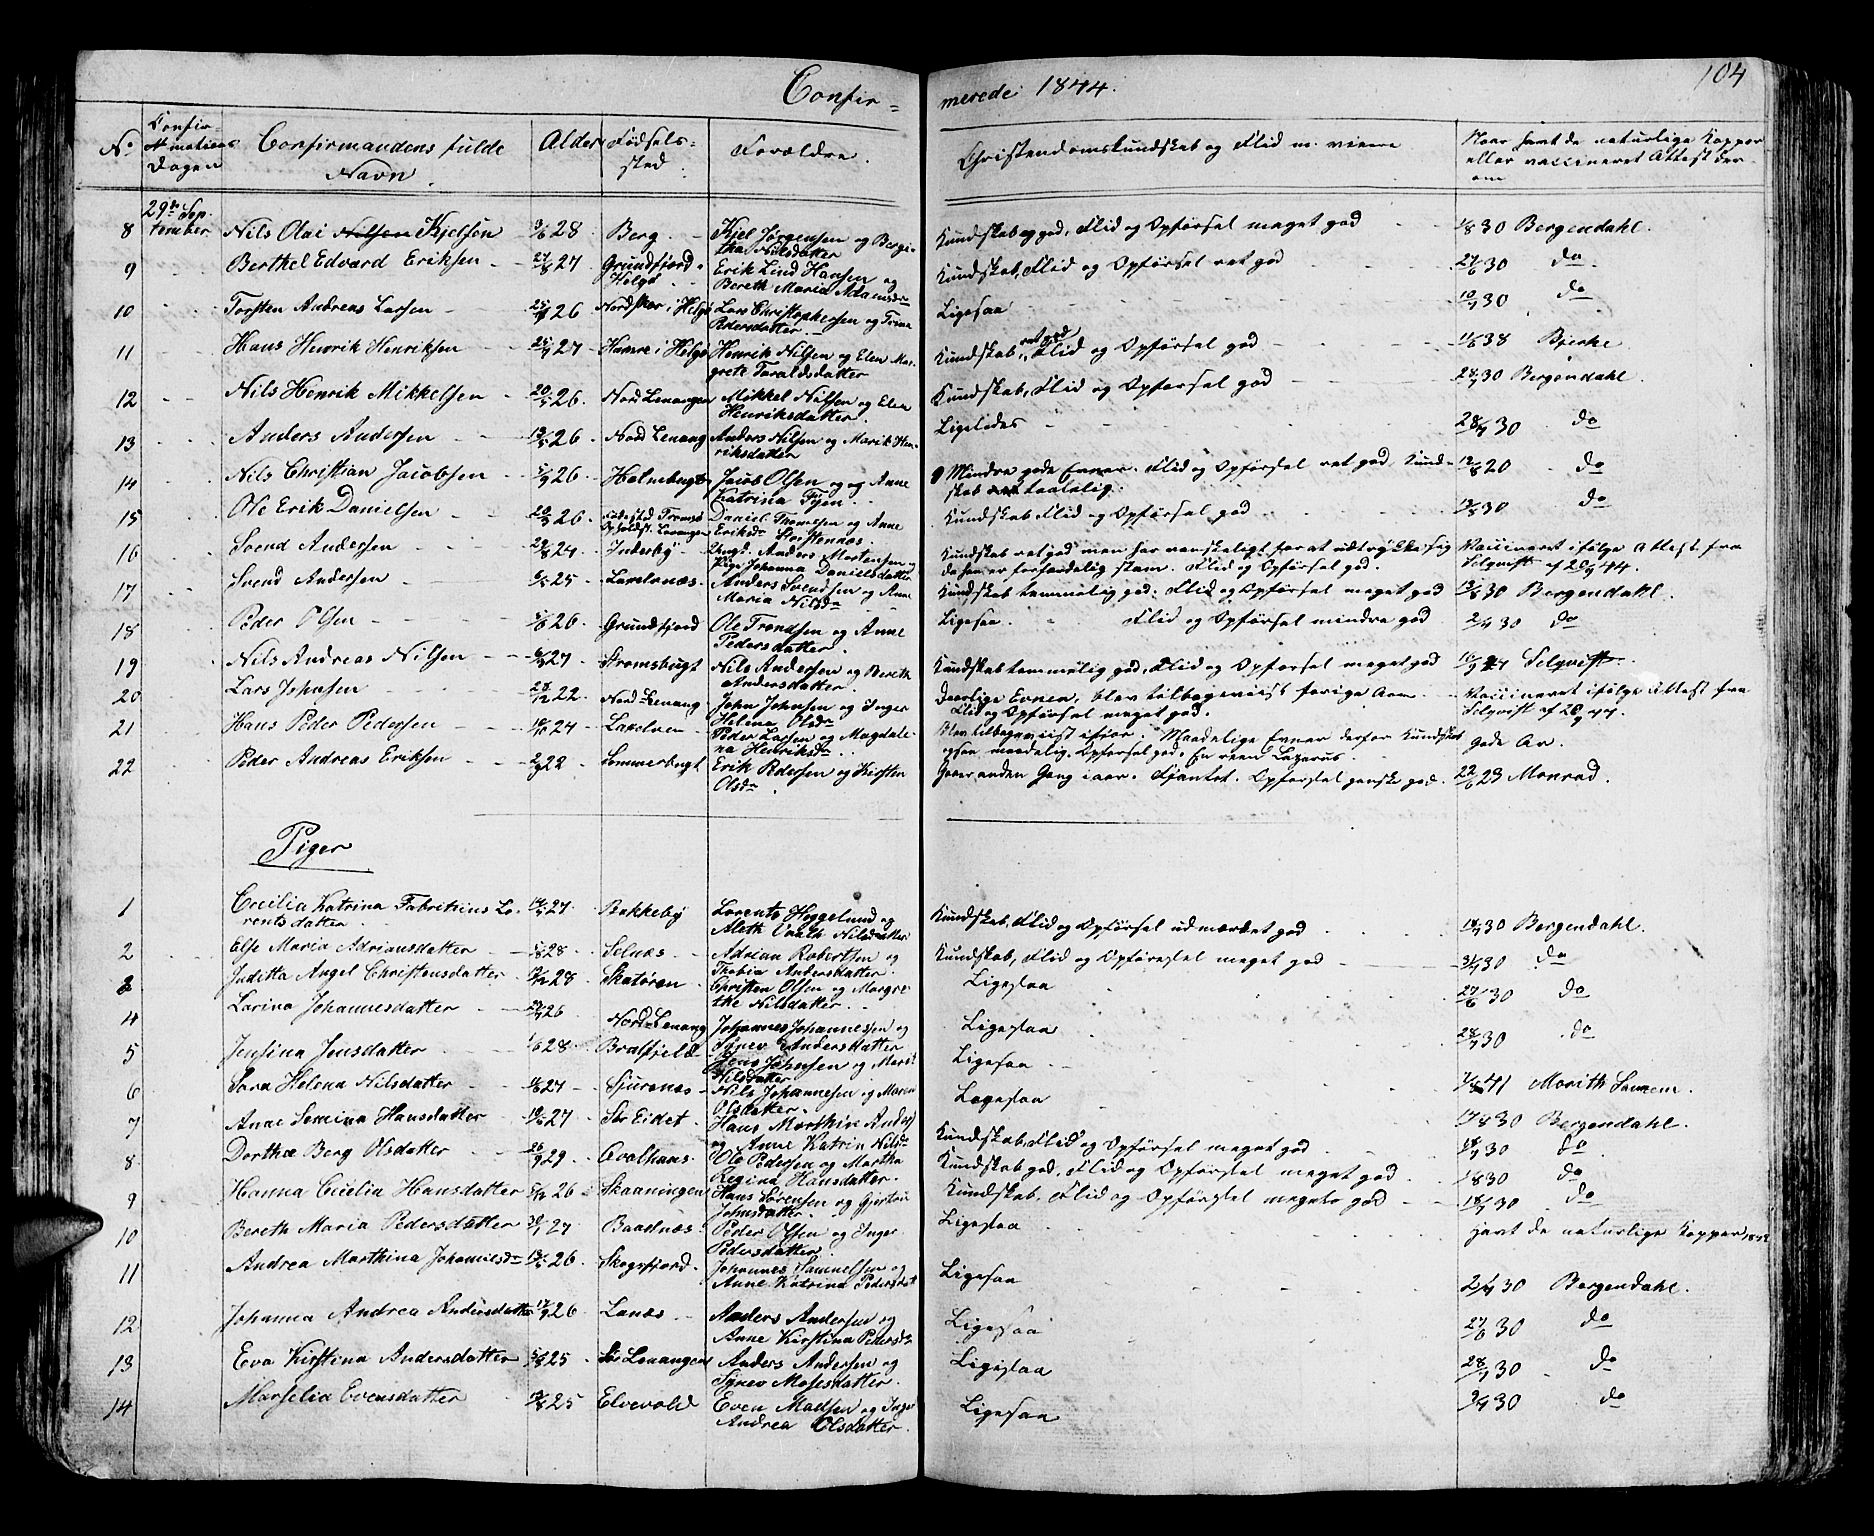 Confir= merede 1844.
104
No
Confir-
mations
Dagen
Confirmandens fulde
Navn.
Alder
Fødsels-
sted.
Forældre.
Christendomskundskab og Flid m: vicere
Naar havt de naturlige Kopper
eller vaccineret Attest der-
om
29de Sep.
tember
8 Nils Olai Nilsen Kjelsøn 28 Berg. Kjel Jørgensen og Bergi-
tha Nilsdatter
Kundskab og god, Flid og Opførsel meget god 30 Bergendahl.
9 Berthel Edvard Eriksen 27 Grundfjord
Helgø Erik Lind Hansen og
Bereth Maria Adamsdr
Kundskab, Flid og Opførsel ret god 27/6 30 do
10 Torsten Andreas Larsen 26 Nordskar i Helgø Lars Christophersen og Trine
Pedersdatter
Ligesaa 30 do
11 Hans Henrik Henriksen 27 Hamre i Helgø Henrik Nilsen og Elen Mar-
grete Taraldsdatter
Kundskab ret god, Flid og Opførsel god 38 Bjerke
12 Nils Henrik Mikkelsen 26. Nord Lenangen Mikkel Nilsen og Elen
Henriksdatter.
Kundskab, Flid og Opførsel god 28/7 30 Bergendahl.
13 Anders Andersen 26 Nord Lenang Anders Nilsen og Marik Hen-
riksdatter
Ligeledes 28/7 30 do
14 Nils Christian Jacobsen 26 Holmebugt Jacob Olsen og og Anne
Katrina Fÿen
Mindre gode Evner. Flid og Opførsel ret god, Kund-
skab taalelig. 20 do
15 Ole Erik Danielsen 26 Fødested Tromsø
Opholdst. Lenangen Daniel Thomesen og Anne
Eriksdr Storstennæs.
Kundskab Flid og Opførsel god 30 do
16 Svend Andersen 24 Inderby Ungk. Anders Mortensen og
Pige Johanna Danielsdatter
Kundskab ret god men har vanskeligt for at udtrykke sig
da han er forfærdelig stam. Flid og Opførsel god.
Vaccineret ifølge Attest fra
Selqvist af 44.
17 Svend Andersen 25 Lavelnæs Anders Svendsen og Anne
Maria Nilsdr
Kundskab temmelig god. Flid og Opførsel meget god 30 Bergendahl.
18 Peder Olsen 26 Grundfjord Ole Trondsen og Anne
Pedersdatter.
Ligesaa. Flid og Opførsel mindre god 30 do
19 Nils Andreas Nilsen 27 Stromsbugt Nils Andersen og Bereth
Andersdatter.
Kundskab temmelig god, Flid og Opførsel meget god Selqvist.
20 Lars Johnsen 22 Nord Lenang John Johnsen og Inger
Helena Olsdr
Daarlige Evner, blev tilbageviist forige Aar.
Flid og Opførsel meget god.
Vaccineret ifølge Attest fra
Selqvist af 44.
21 Hans Peder Pedersen 24 Lakelven Peder Larsen og Magdale-
na Henriksdr
Blev tilbageviist ifjor. Maadelige Evner derfor Kundskab
ogsaa maadelig. Opførsel god. En reen Lazarus.
gode Ar.
22 Peder Andreas Eriksen 22 Sommerbugt Erik Pedersen og Kirsten
Olsdr
Gaaer anden Gang iaar. Fjantet. Opførsel ganske god. 22/6 23 Monrad.
Piger
1 Cecilia Katrina Fabritzius Lo-
rentsdatter 27 Bakkeby Lorents Heggelund og
Aleth Nilsdatter
Kundskab, Flid og Opførsel udmærket god 30 Bergendahl.
2 Else Maria Adriansdatter 28 Selnæs Adrian Robertsen og
Thobia Andersdatter.
Kundskab, Flid og Opførelsel meget god 30 do
3 Juditta Angel Christensdatter 28 Skatøren Christen Olsen og Margre-
the Nilsdatter.
Ligesaa 27/6 30 do
4 Larina Johannesdatter 26 Nord-Lenang Johannes Johannessen og
Synev Andersdatter
Ligesaa 28/7 30 do
5 Jensina Jensdatter 28 Bratfjeld Jens Johnsen og Marit
Nilsdatter
Ligesaa
6 Sara Helena Nilsdatter 27 Sjurenæs Nils Johannesen og Maren
Olsdatter.
Lagesaa 41 Morith
7 Anne Semina Hansdatter 27 Sør Eidet Hans Marthin Anders
og Anne Katrin Nilsdr
Kundskab, Flid og Opførsel meget god 30 Bergendahl.
8 Dorthe Berg Olsdatter 29 Qvalhans Ole Pedersen og Martha
Regina Hansdatter.
Kundskab god, Flid og Opførsel meget god 30 do
9 Hanna Cecilia Hansdatter 26 Skaaningen Hans Sørensen og Gjertru
Johnsdatter.
Kundskab, Flid og Opførstel megete god 30 do
10 Bereth Maria Pedersdatter 27 Baadnæs Peder Olsen og Inger
Pedersdatter.
Ligesaa havt de naturlige Kopper
11 Andrea Marthina Johannesdr 26 Skogsfjord. Johannes Samuelsen og
Anne Katrina Pedersdat
Ligesaa 30 Bergendahl.
12 Johanna Andrea Andersdatter 26 Lanæs Anders Andersen og
Anne Kirstina Pedersdr
Ligesaa 27/6 30 do
13 Eva Kirstina Andersdatter 25 Sør Lenangen Anders Andersen og
Synev Mosesdatter.
Ligesaa 28/7 30 do
14 Marselia Evensdatter 25 Elvevold Even Madsen og Inger
Andrea Olsdatter.
Ligesaa 30 do